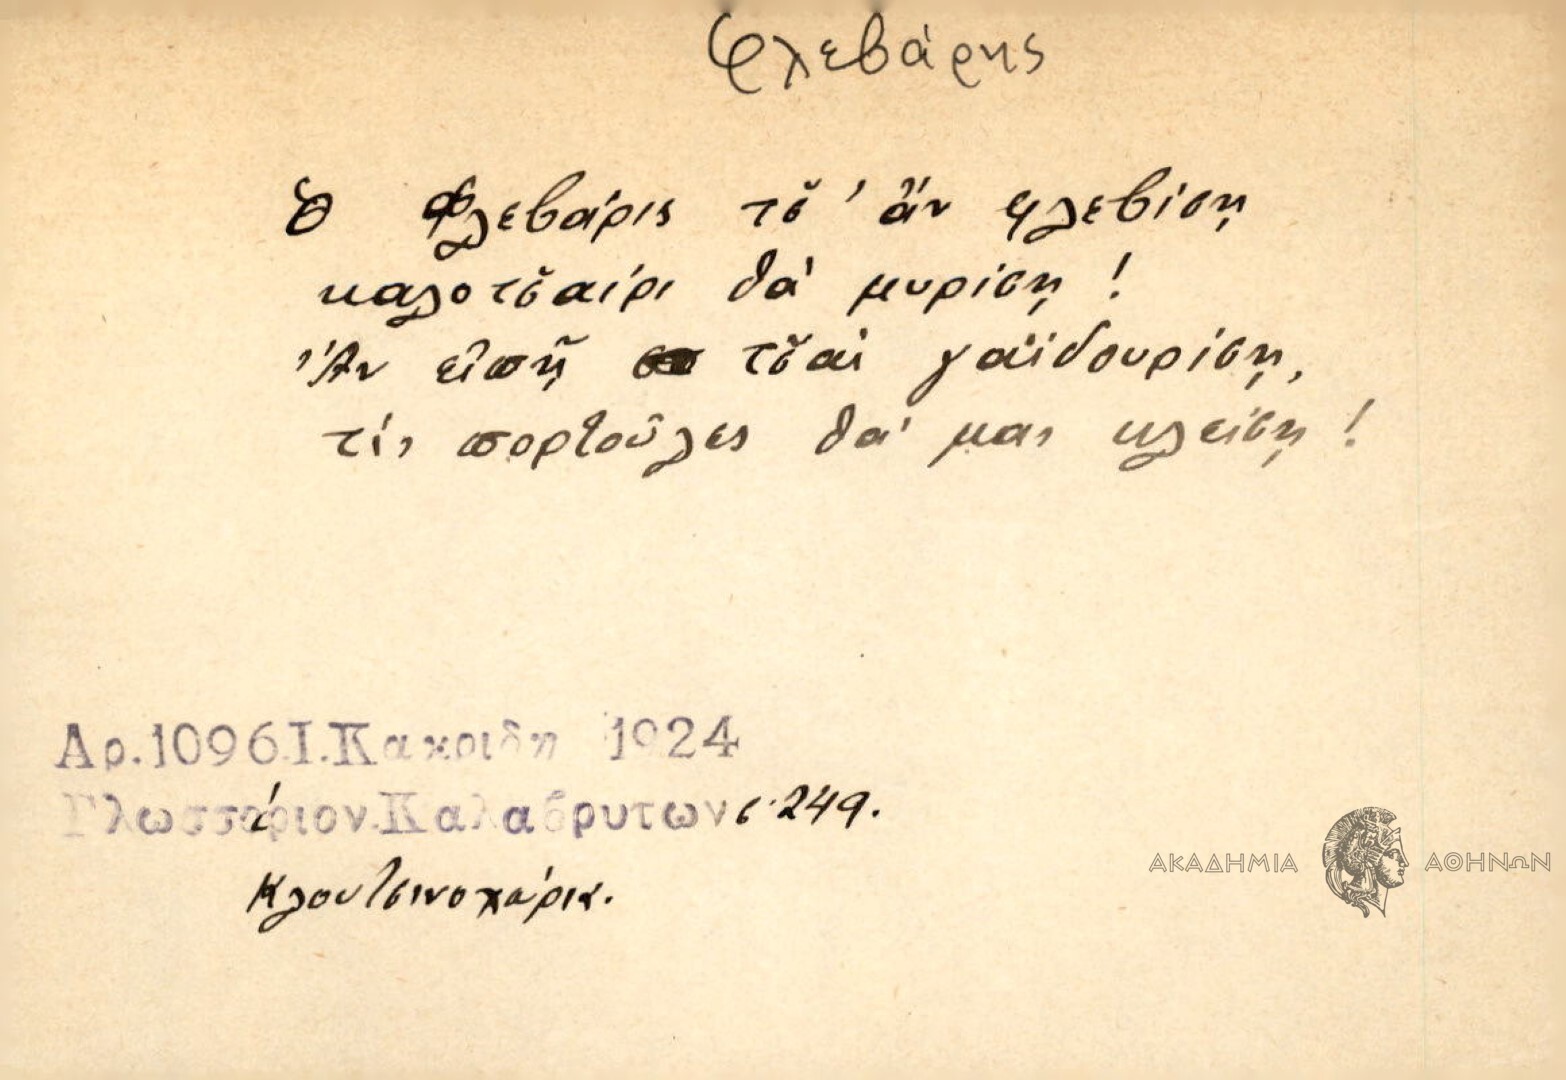 Φλεβάρης
Ὁ Φλεβάρις τσ̆' ἂν φλεβίσῃ
καλοτσ̆αίρι θὰ μυρίσῃ!
Ἂν εἰπῇ τσ̆αὶ γαϊδουρίσῃ,
τὶς πορτοῦλες θὰ μας κλείσῃ!
Αρ.1096 Ι.Κακριδη 1924
Γλωσσάριον Καλαβρυτων σ. 249.
Κλουτσινοχώρια.
ΑΚΑΔΗΜΙΑ ΑΘΗΝΩΝ